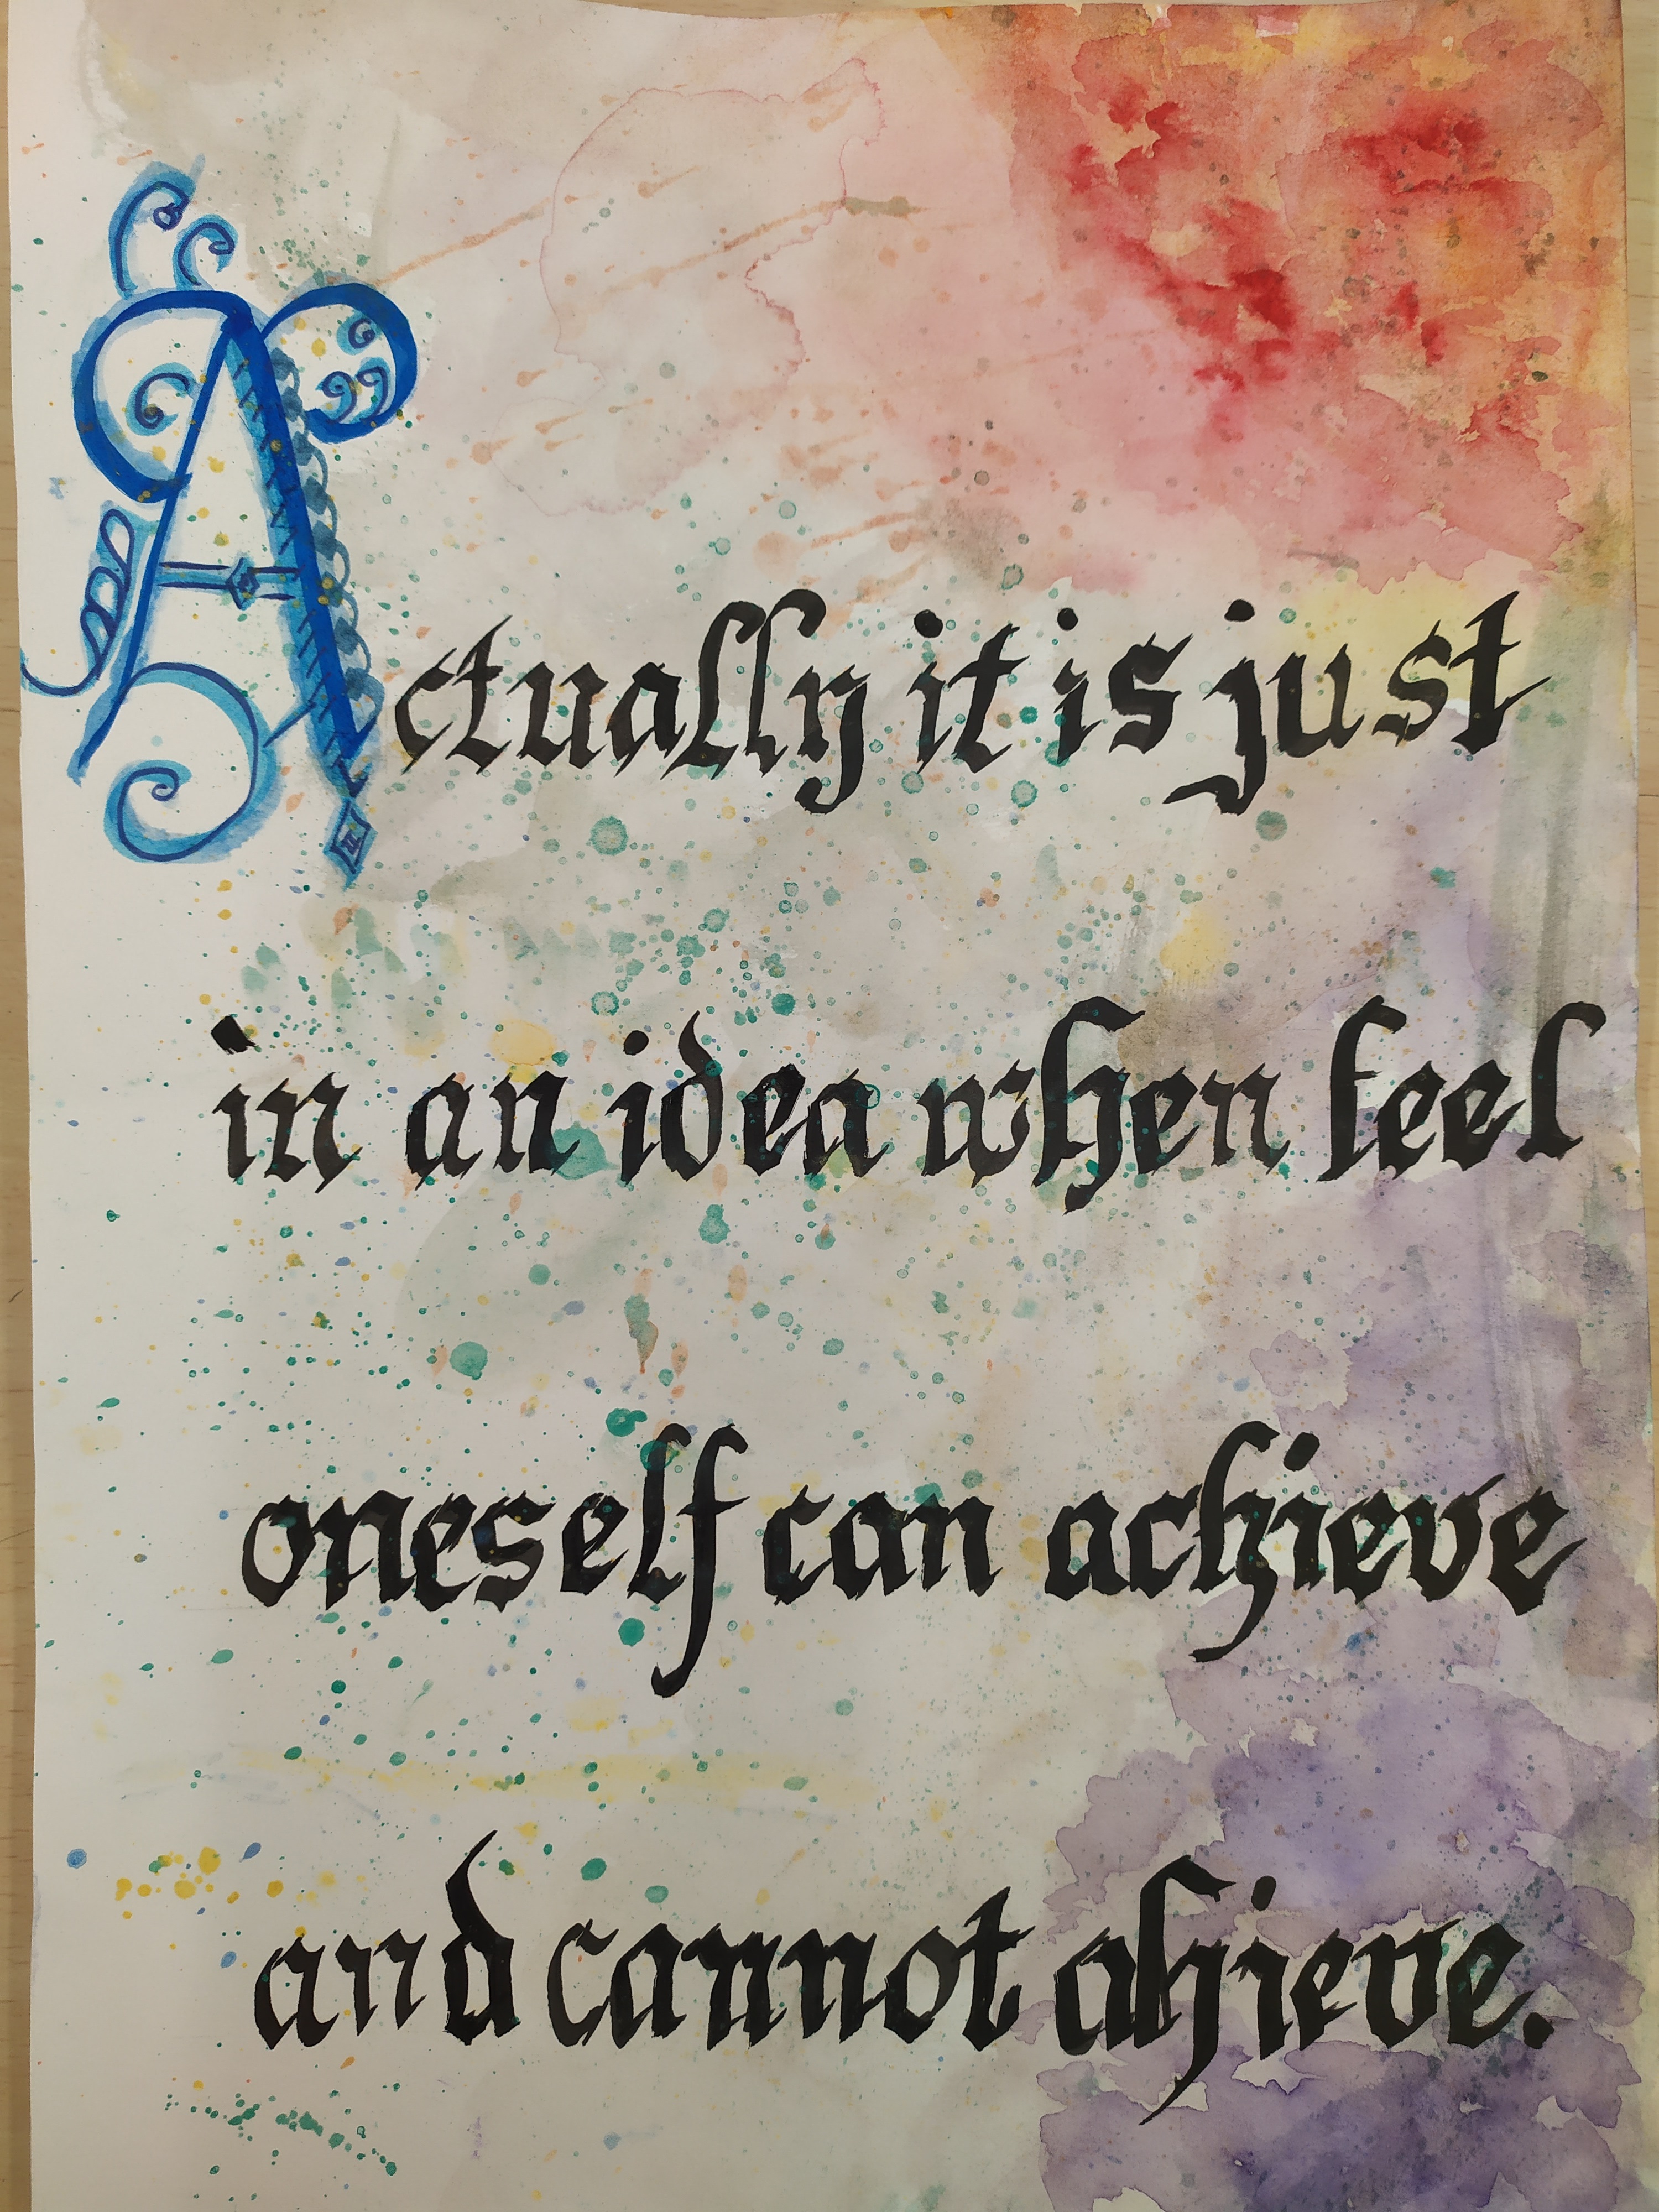 Actually it is just
in an idea when feel
oneself can achieve
and cannot ahieve.